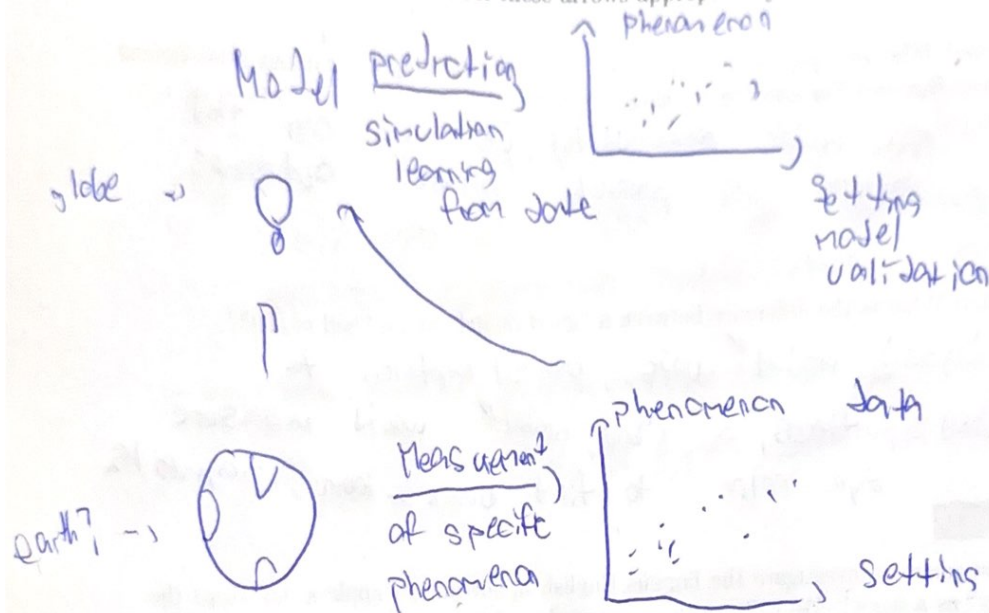 phenomenon
Model prediction
simulation
learning
from date
globe
Setting
model
validation
phenomenon data
Measurement
of specific
phenomenon
earth?
setting